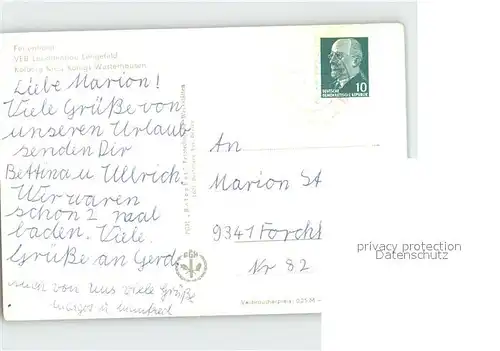 Ferienheim
VEB Leuchtenbau Lengefeld
Kolberg Kreis Königs Wusterhausen
Liebe Marion!
Viele Grüße von
unseren Urlaub
senden Dir
Bettina u Ullrich.
Wir waren
schon 2 mal
baden. Viele
Grüße an Gerd.
auch von uns viele Grüße
u
DEUTSCHE
DEMOKRATISCHE REPUBLIK
10
An
Marion St
9341 Forcht
Nr 82
PGH
Verbraucherpreis: 0,25 M
privacy protection
Datenschutz